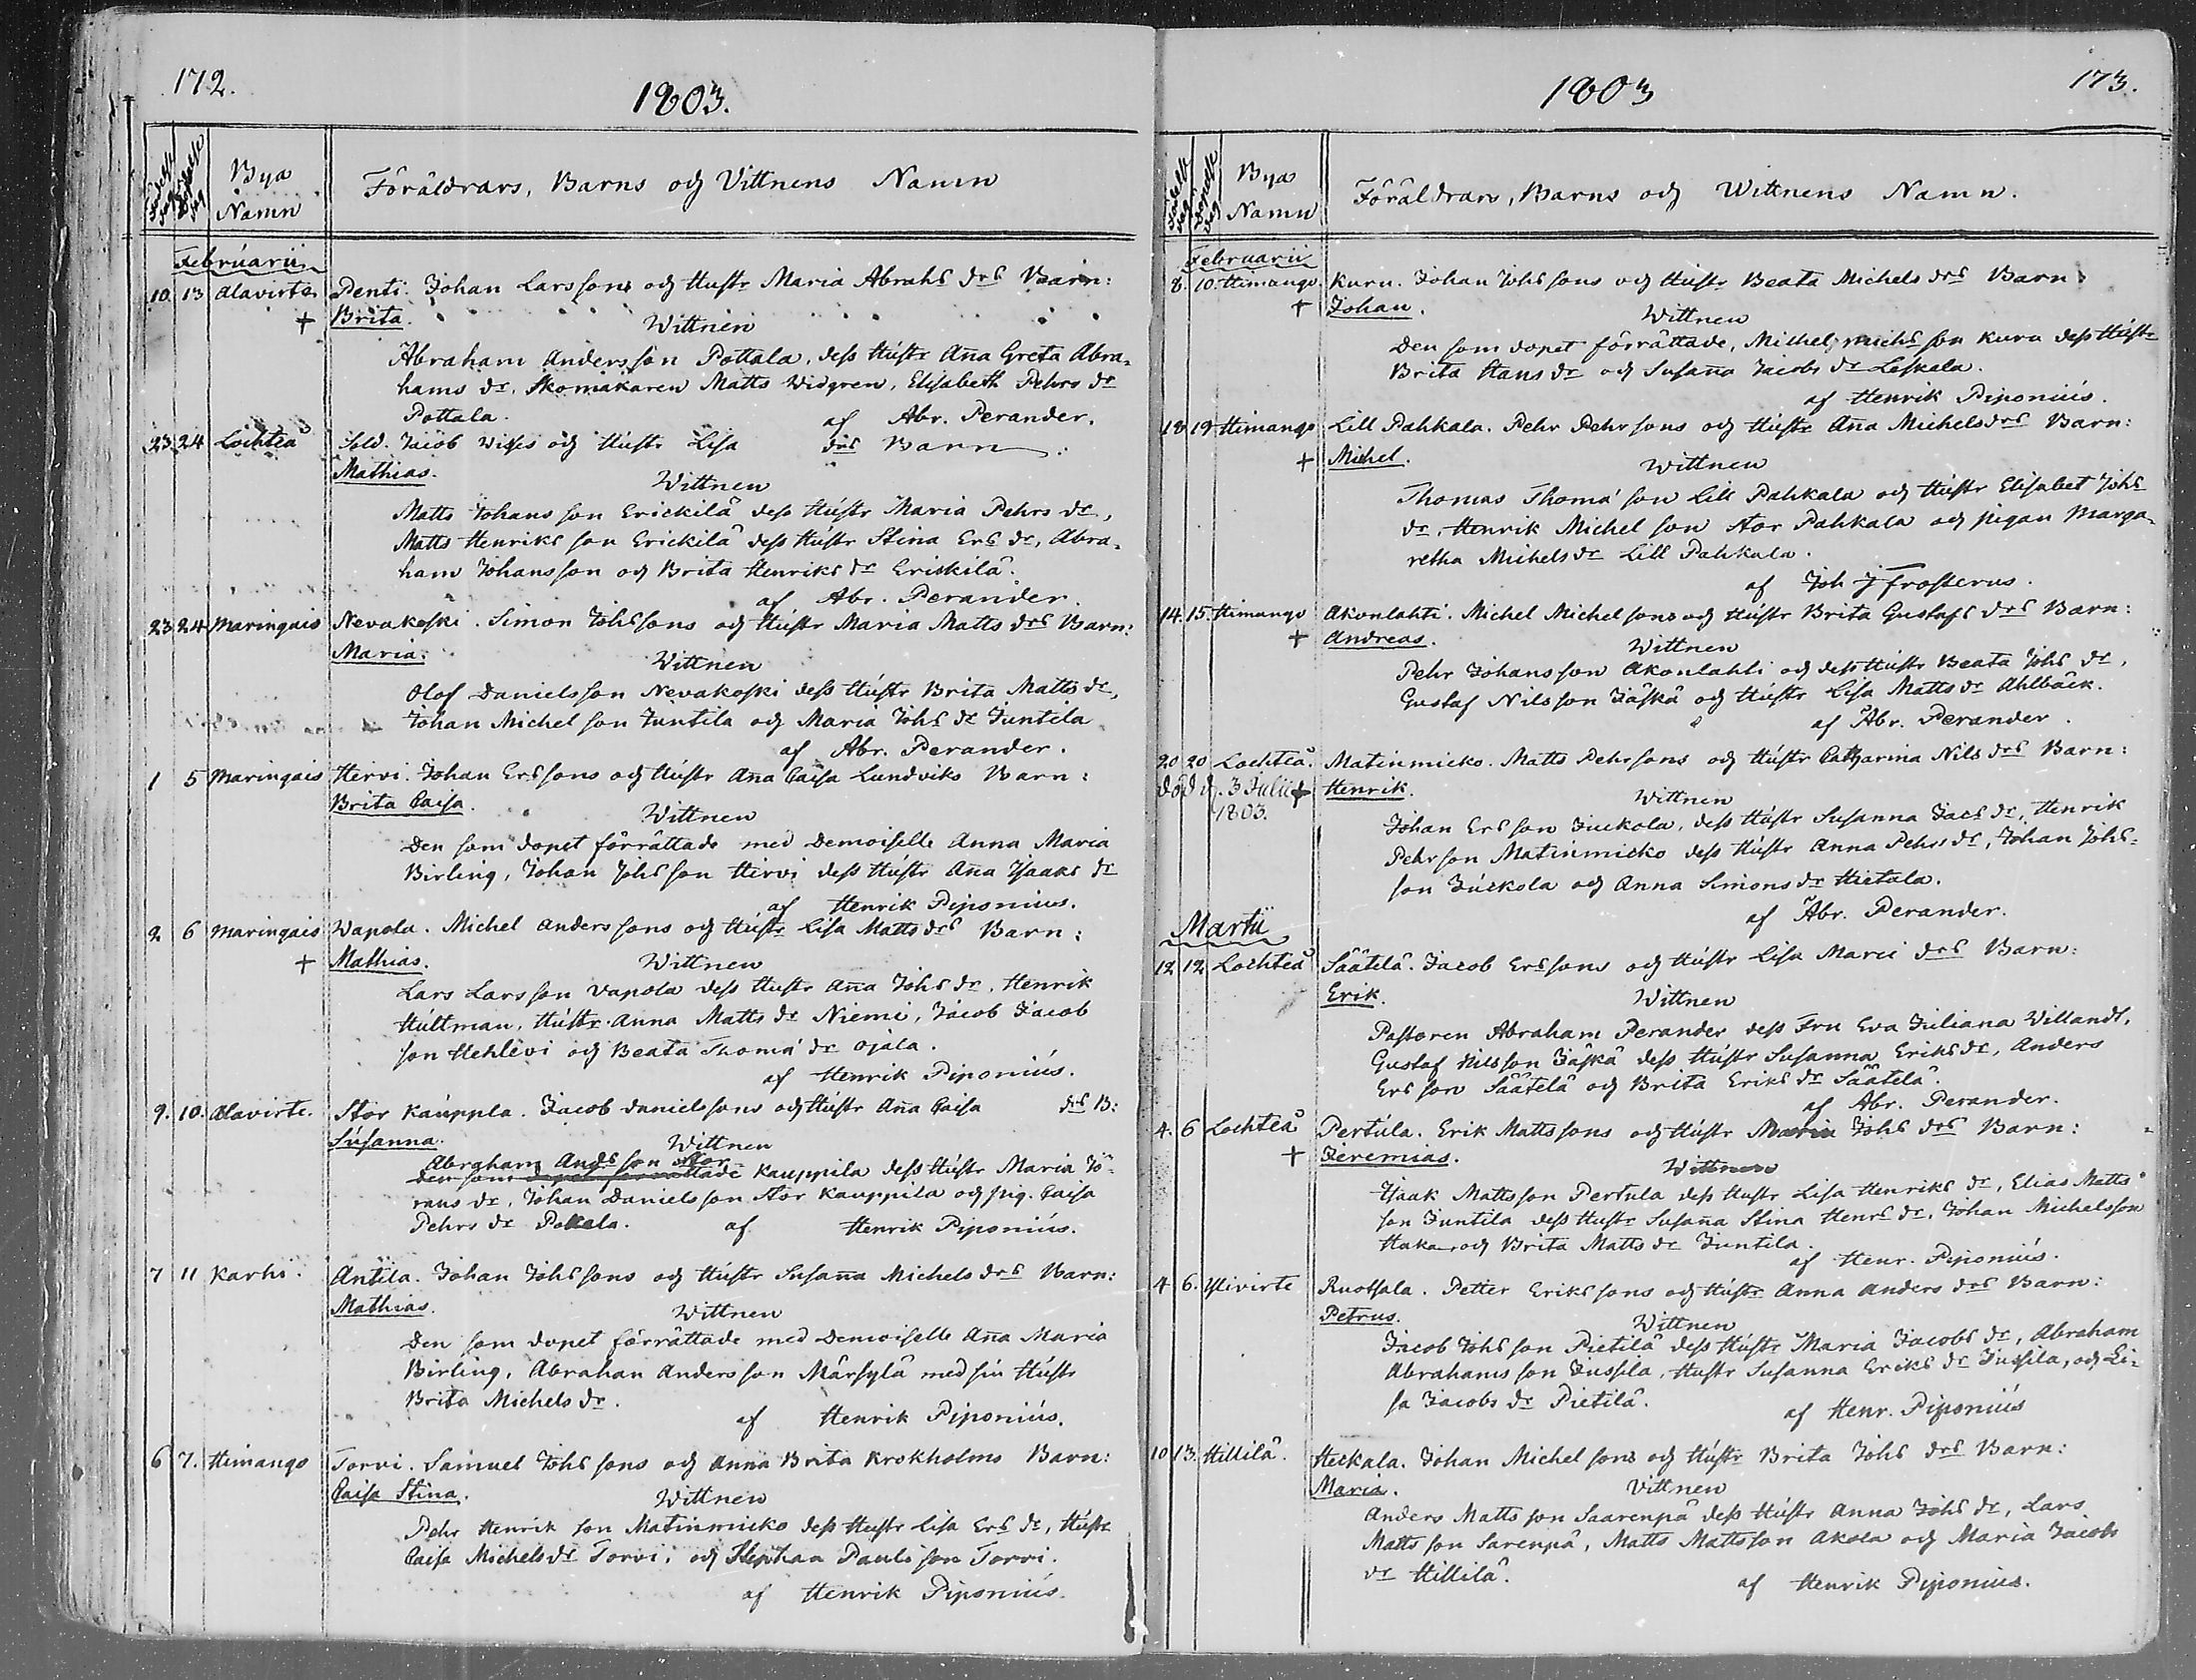 172.
1803.
Födelse dag
Döpelse dag
Bya Namn
Föräldrars, Barns och Vittnens Namn
Februarii
10. 13 Alavirte Penti. Johan Larssons och Hustr Maria Abrahs drs Barn:
+ Brita. Wittnen
Abraham Andersson Pottala, dess Hustr Aña Greta Abra-
hams dr, Skomakaren Matts Widgren, Elisabeth Pehrs dr
Pottala. af Abr. Perander.
23 24 Lochteå Sold. Jacob Wises och Hustr Lisa drs Barn:
Mathias. Wittnen
Matts Johans son Erickilä dess Hustr Maria Pehrs dr,
Matts Henriks son Erickilä dess Hustr Stina Ers dr, Abra-
ham Johansson och Brita Henriks dr Erickilä.
af Abr. Perander.
23 24 Maringais Nevakoski. Simon Johssons och Hustr Maria Matts drs Barn:
Maria. Wittnen
Olof Danielsson Nevakoski dess Hustr Brita Matts dr,
Johan Michel son Juntila och Maria Johs dr Juntila
af Abr. Perander.
1 5 Maringais Hirvi. Johan Erssons och Hustr Aña Caisa Lundviks Barn:
Brita Caisa. Wittnen
Den som dopet förrättade med Demoiselle Anna Maria
Birling, Johan Johsson Hirvi dess Hustr Aña Isaaks dr
af Henrik Piponius.
2 6 Maringais Wapola. Michel Anderssons och Hustr Lisa Matts drs Barn:
+ Mathias. Wittnen
Lars Larsson Vapola dess Hustr Aña Johs dr, Henrik
Hultman, Hustr Anna Matts dr Niemi, Jacob Jacob
son Hehlevi och Beata Thomä dr Ojala.
af Henrik Piponius.
9. 10. Alavirte. Stor Kauppla. Jacob Danielssons och Hustr Aña Caisa drs B:
Susanna. Wittnen
Abraham Ands son Stor
Den som dopet förrättade Kauppila dess Hustr Maria Jö-
rans dr, Johan Danielsson Stor Kauppila och pig. Caisa
Pehrs dr Pokela. af Henrik Piponius.
7 11 Karhi. Antila. Johan Johssons och Hustr Susaña Michels drs Barn:
Mathias. Wittnen
Den som dopet förrättade med Demoiselle Aña Maria
Birling, Abrahan Andersson Märsylä med sin Hustr
Brita Michels dr.
af Henrik Piponius.
6 7. Himango Torvi. Samuel Johssons och Anna Brita Krokholms Barn:
Caisa Stina. Wittnen
Pehr Henrik son Matinmicko dess Hustr Lisa Ers dr, Hustr
Caisa Michels dr Torvi, och Stephan Pauls son Torvi.
af Henrik Piponius.
1803
173.
Födelse dag
Döpelse dag
Bya Namn
Föräldrars, Barns och Wittnens Namn.
Februarii
8. 10. Himango. Kuru. Johan Johssons och Hustr Beata Michels drs Barn:
+ Johan. Wittnen
Den som dopet förrättade, Michel Michs son Kuru dess Hustr
Brita Hans dr och Susaña Jacobs dr Leskela.
af Henrik Piponius.
18 19 Himango Lill Pahkala. Pehr Pehrsons och Hustr Aña Michels drs Barn:
+ Michel. Wittnen
Thomas Thomä son Lill Pahkala och Hustr Elisabet Johs
dr, Henrik Michel son Stor Pahkala och pigan Marga-
retha Michels dr Lill Pahkala.
af Joh J Frosterus.
14. 15. Himango Akonlahti. Michel Michelsons och Hustr Brita Gustafs drs Barn:
+ Andreas. Wittnen
Pehr Johansson Akonlahti och dess Hustr Beata Johs dr,
Gustaf Nilsson Jäskä och Hustr Lisa Matts dr Ahlbäck.
af Abr. Perander.
20 20 Lochteå. Matinmicko. Matts Pehrsons och Hustr Catharina Nils drs Barn:
död d. 3 Julii + Henrik. Wittnen
1803.
Johan Ersson Juckola, dess Hustr Susanna Jacs dr, Henrik
Pehrson Matinmicko dess Hustr Anna Pehrs dr, Johan Johs-
son Juckola och Anna Simons dr Hietala.
af Abr. Perander.
Martii
12 12 Lochteå Säätelä. Jacob Erssons och Hustr Lisa Marci drs Barn:
Erik. Wittnen
Pastoren Abraham Perander dess Fru Eva Juliana Willandt,
Gustaf Nilsson Jäskä dess Hustr Susanna Eriks dr, Anders
Ersson Säätelä och Brita Eriks dr Säätelä.
af Abr. Perander.
4. 6 Lochteå Pertula. Erik Mattssons och Hustr Maria Johs drs Barn:
+ Jeremias. Wittnen
Isaak Mattsson Pertula dess Hustr Lisa Henriks dr, Elias Matts
son Juntila dess Hustr Susaña Stina Henrs dr, Johan Michelsson
Haka och Brita Matts dr Juntila.
af Henr. Piponius.
4 6. Ylivirte Ruotsala. Petter Erikssons och Hustr Anna Anders drs Barn:
Petrus. Wittnen
Jacob Johsson Pietilä dess Hustr Maria Jacobs dr, Abraham
Abrahams son Jussila, Hustr Susanna Eriks dr Jussila, och Li-
sa Jacobs dr Pietilä.
af Henr. Piponius
10 13. Hillilä. Heikala. Johan Michelsons och Hustr Brita Johs drs Barn:
Maria. Vittnen
Anders Mattsson Saarenpä dess Hustr Anna Johs dr, Lars
Mattsson Sarenpä, Matts Mattsson Akola och Maria Jacobs
dr Hillilä.
af Henrik Piponius.